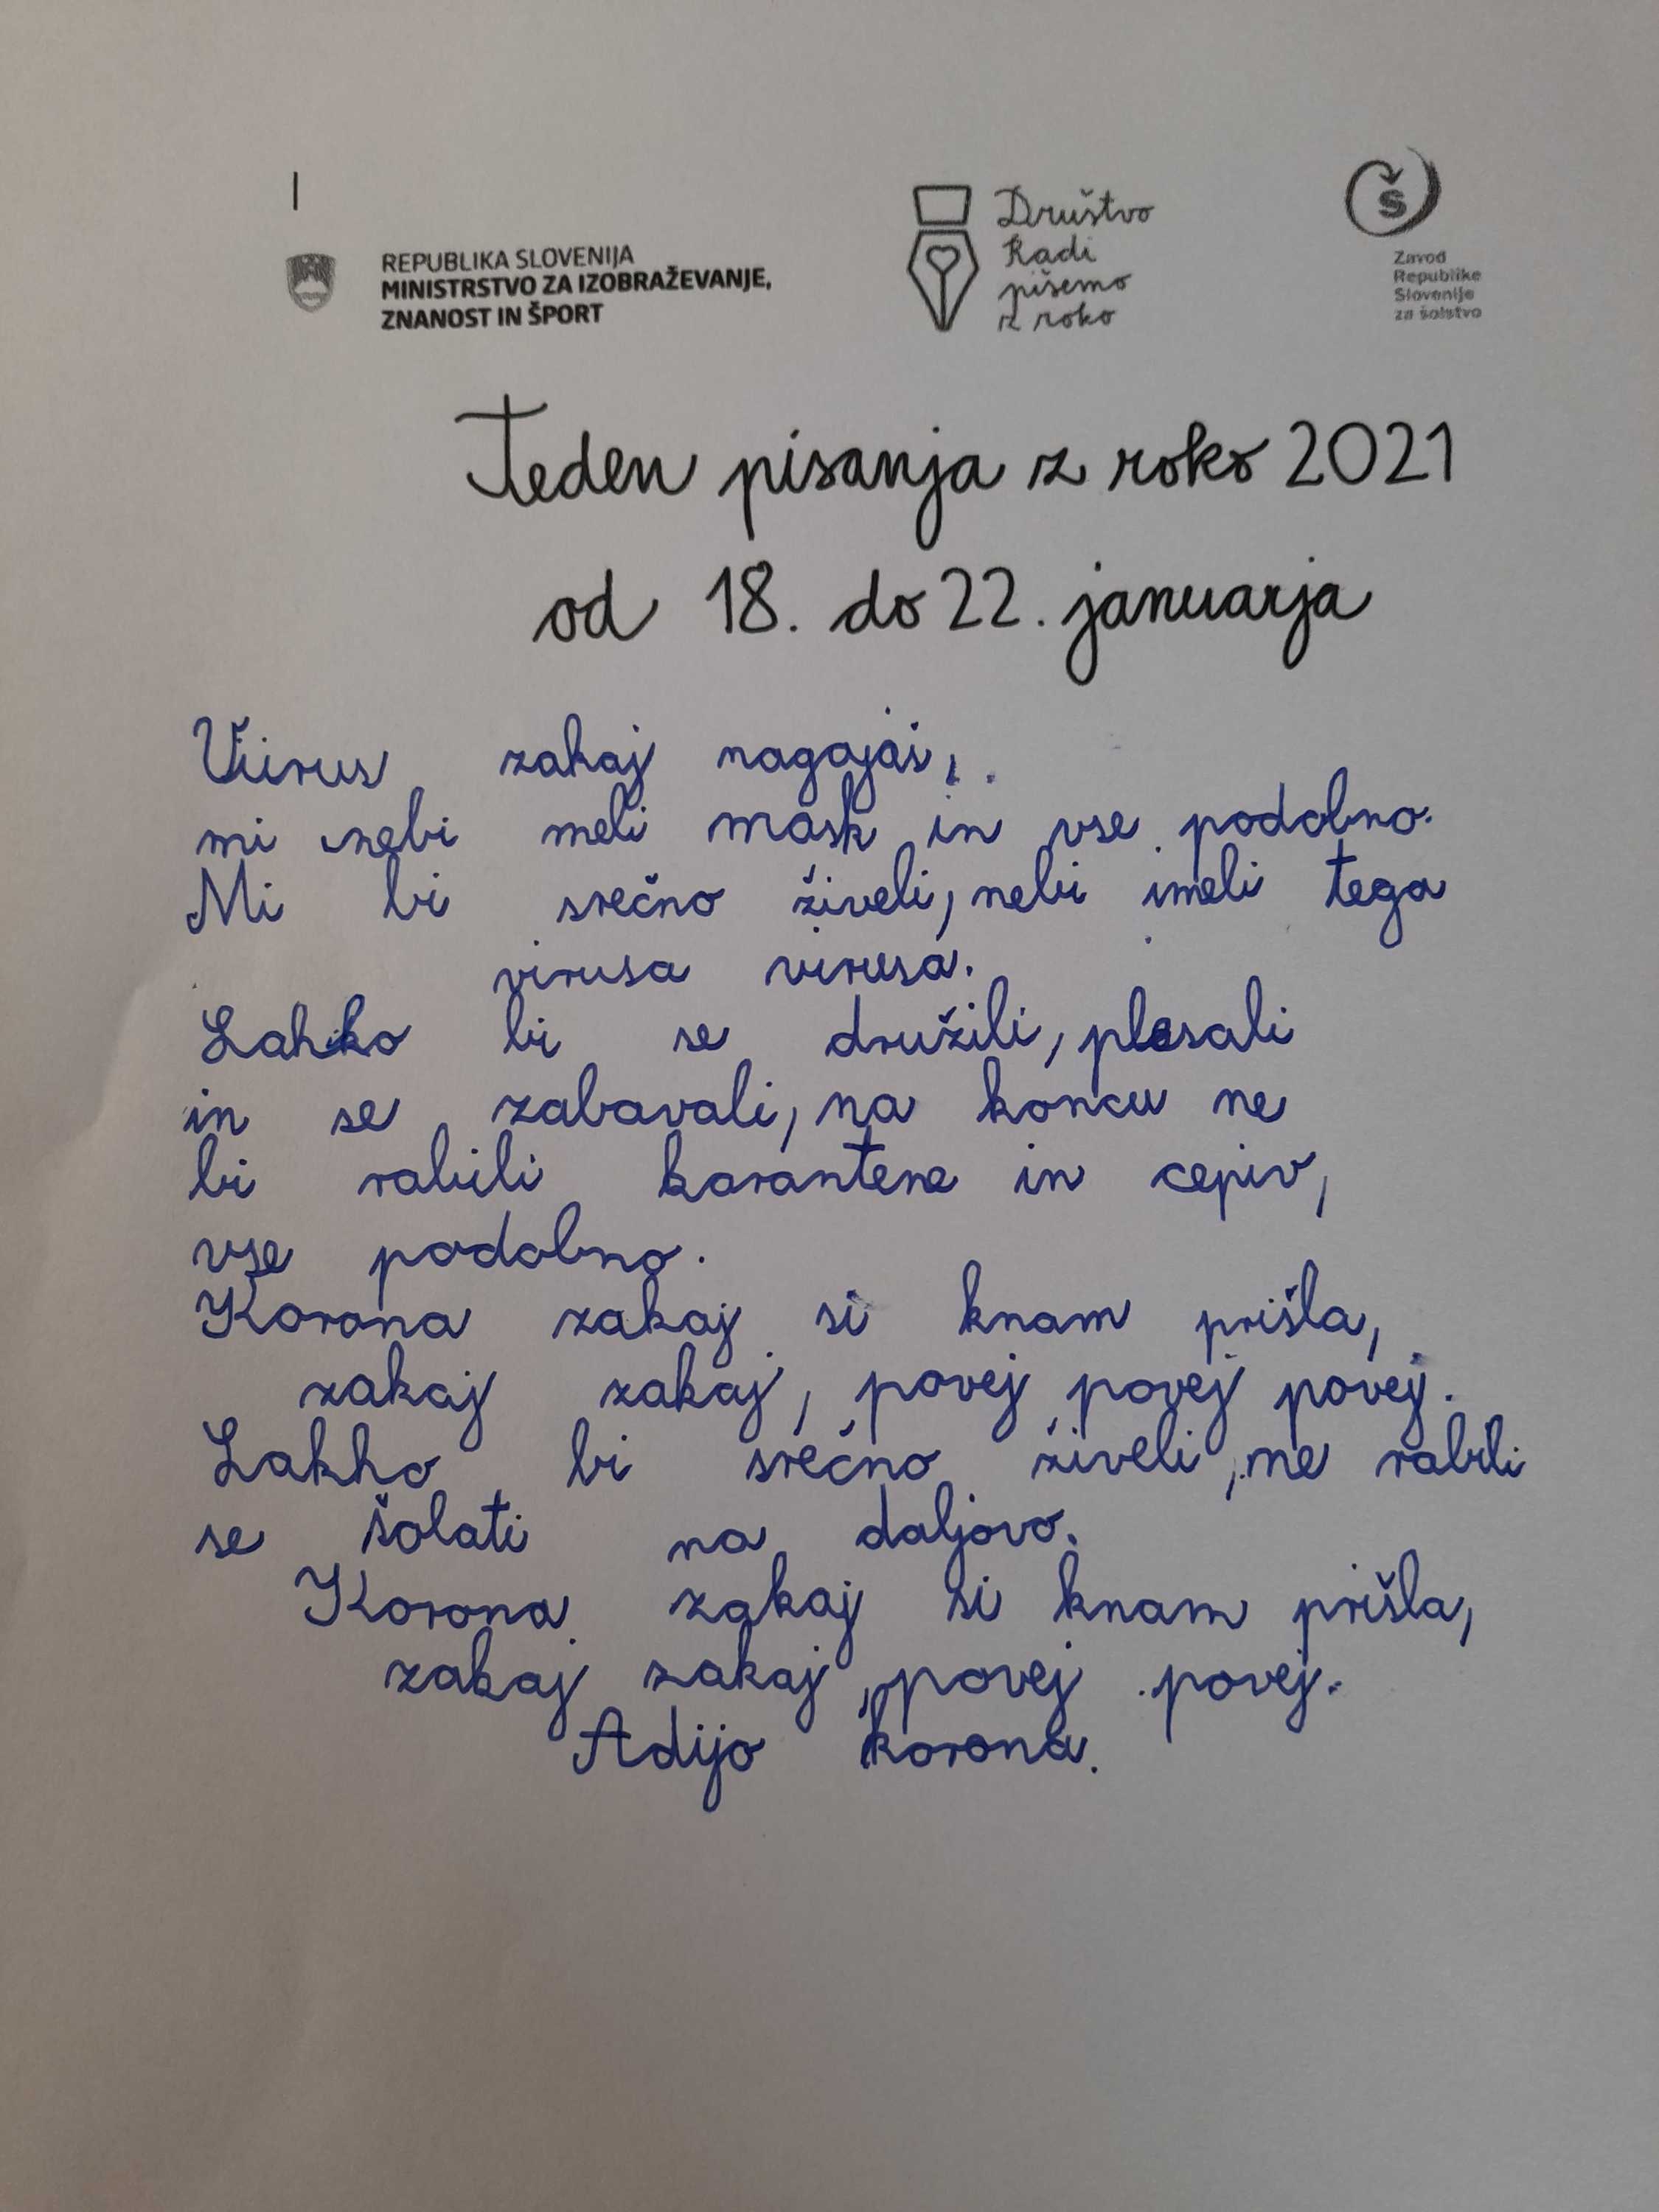 REPUBLIKA SLOVENIJA
MINISTRSTVO ZA IZOBRAŽEVANJE,
ZNANOST IN ŠPORT
Društvo
Radi
pišemo
z roko
Š
Zavod
Republike
Slovenije
za šolstvo
Teden pisanja z roko 2021
od 18. do 22. januarja
zakaj nagajaš,
mi nebi meli mask in vse podobno.
Mi bi srečno živeli, nebi imeli tega
virusa virusa.
Lahko bi se družili, plesali
in se zabavali, na koncu ne
bi rabili karantene in cepiv,
vse podobno.
Korona zakaj si knam prišla,
zakaj zakaj, povej povej povej.
Lakho bi srečno živeli, ne rabili
se šolati na daljavo.
Korona zakaj si knam prišla,
zakaj zakaj, povej povej.
Adijo korona.